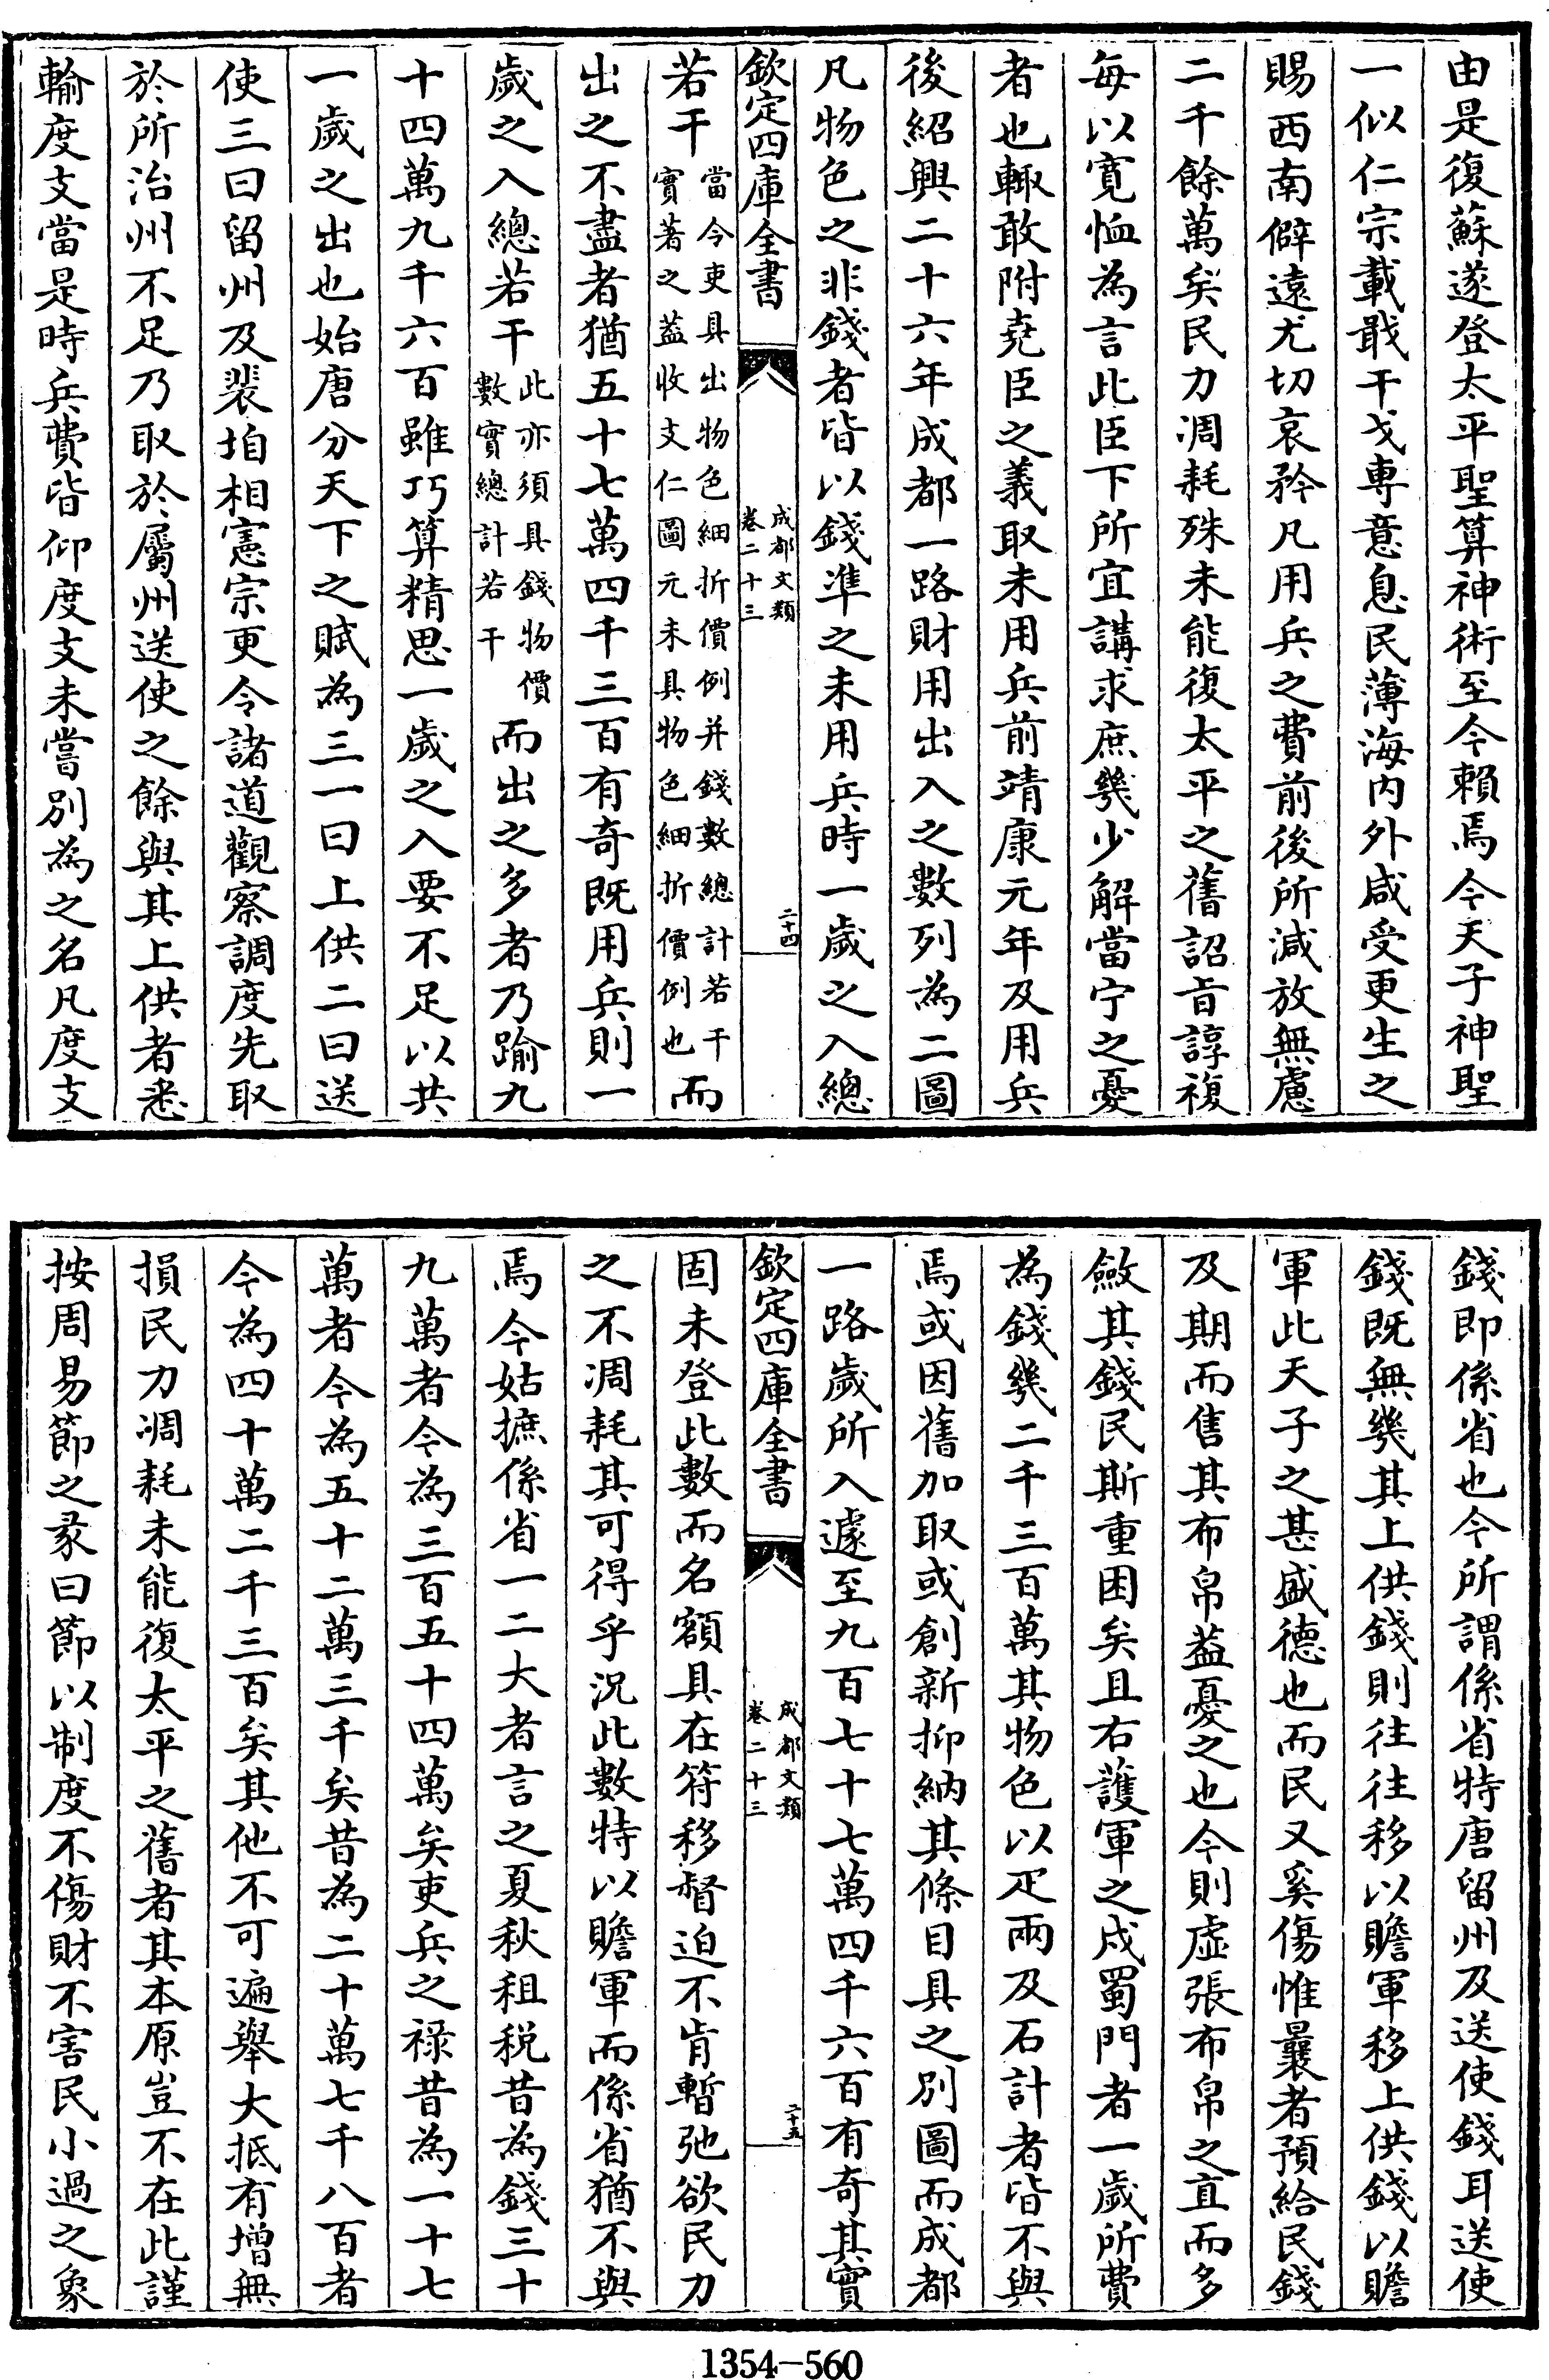 由是復蘇遂登太平聖算神術至今賴焉今天子神聖
一似仁宗載戢干戈専意息民薄海内外咸受更生之
賜西南僻遠尤切哀矜凡用兵之費前後所減放無慮
二千餘萬矣民力凋耗殊未能復太平之舊詔㫖諄複
每以寛恤為言此臣下所宜講求庶幾少解當宁之憂
者也輙敢附堯臣之義取未用兵前靖康元年及用兵
後紹興二十六年成都一路財用出入之數列為二圖
凡物色之非錢者皆以錢準之未用兵時一歲之入總
欽定四庫全書
成都文類
卷二十三
二十四
若干當今吏具出物色細折價例并錢數總計若干
實著之葢收支仁圖元未具物色細折價例也而
出之不盡者猶五十七萬四千三百有奇既用兵則一
歲之入總若干此亦須具錢物價
數實總計若干而出之多者乃踰九
十四萬九千六百雖巧算精思一歲之入要不足以共
一歲之出也始唐分天下之賦為三一曰上供二曰送
使三曰留州及裴垍相憲宗更令諸道觀察調度先取
於所治州不足乃取於屬州送使之餘與其上供者悉
輸度支當是時兵費皆仰度支未嘗別為之名凡度支
錢即係省也今所謂係省特唐留州及送使錢耳送使
錢既無幾其上供錢則往往移以贍軍移上供錢以贍
軍此天子之甚盛德也而民又奚傷惟曩者預給民錢
及期而售其布帛葢憂之也今則虛張布帛之直而多
斂其錢民斯重困矣且右䕶軍之戍蜀門者一歲所費
為錢幾二千三百萬其物色以疋兩及石計者皆不與
焉或因舊加取或創新抑納其條目具之別圖而成都
一路歲所入遽至九百七十七萬四千六百有奇其實
欽定四庫全書
成都文類
卷二十三
二十五
固未登此數而名額具在符移督迫不肯暫弛欲民力
之不凋耗其可得乎況此數特以贍軍而係省猶不與
焉今姑摭係省一二大者言之夏秋租税昔為錢三十
九萬者今為三百五十四萬矣吏兵之禄昔為一十七
萬者今為五十二萬三千矣昔為二十萬七千八百者
今為四十萬二千三百矣其他不可遍舉大抵有增無
損民力凋耗未能復太平之舊者其本原豈不在此謹
按周易節之彖曰節以制度不傷財不害民小過之象
1354-560